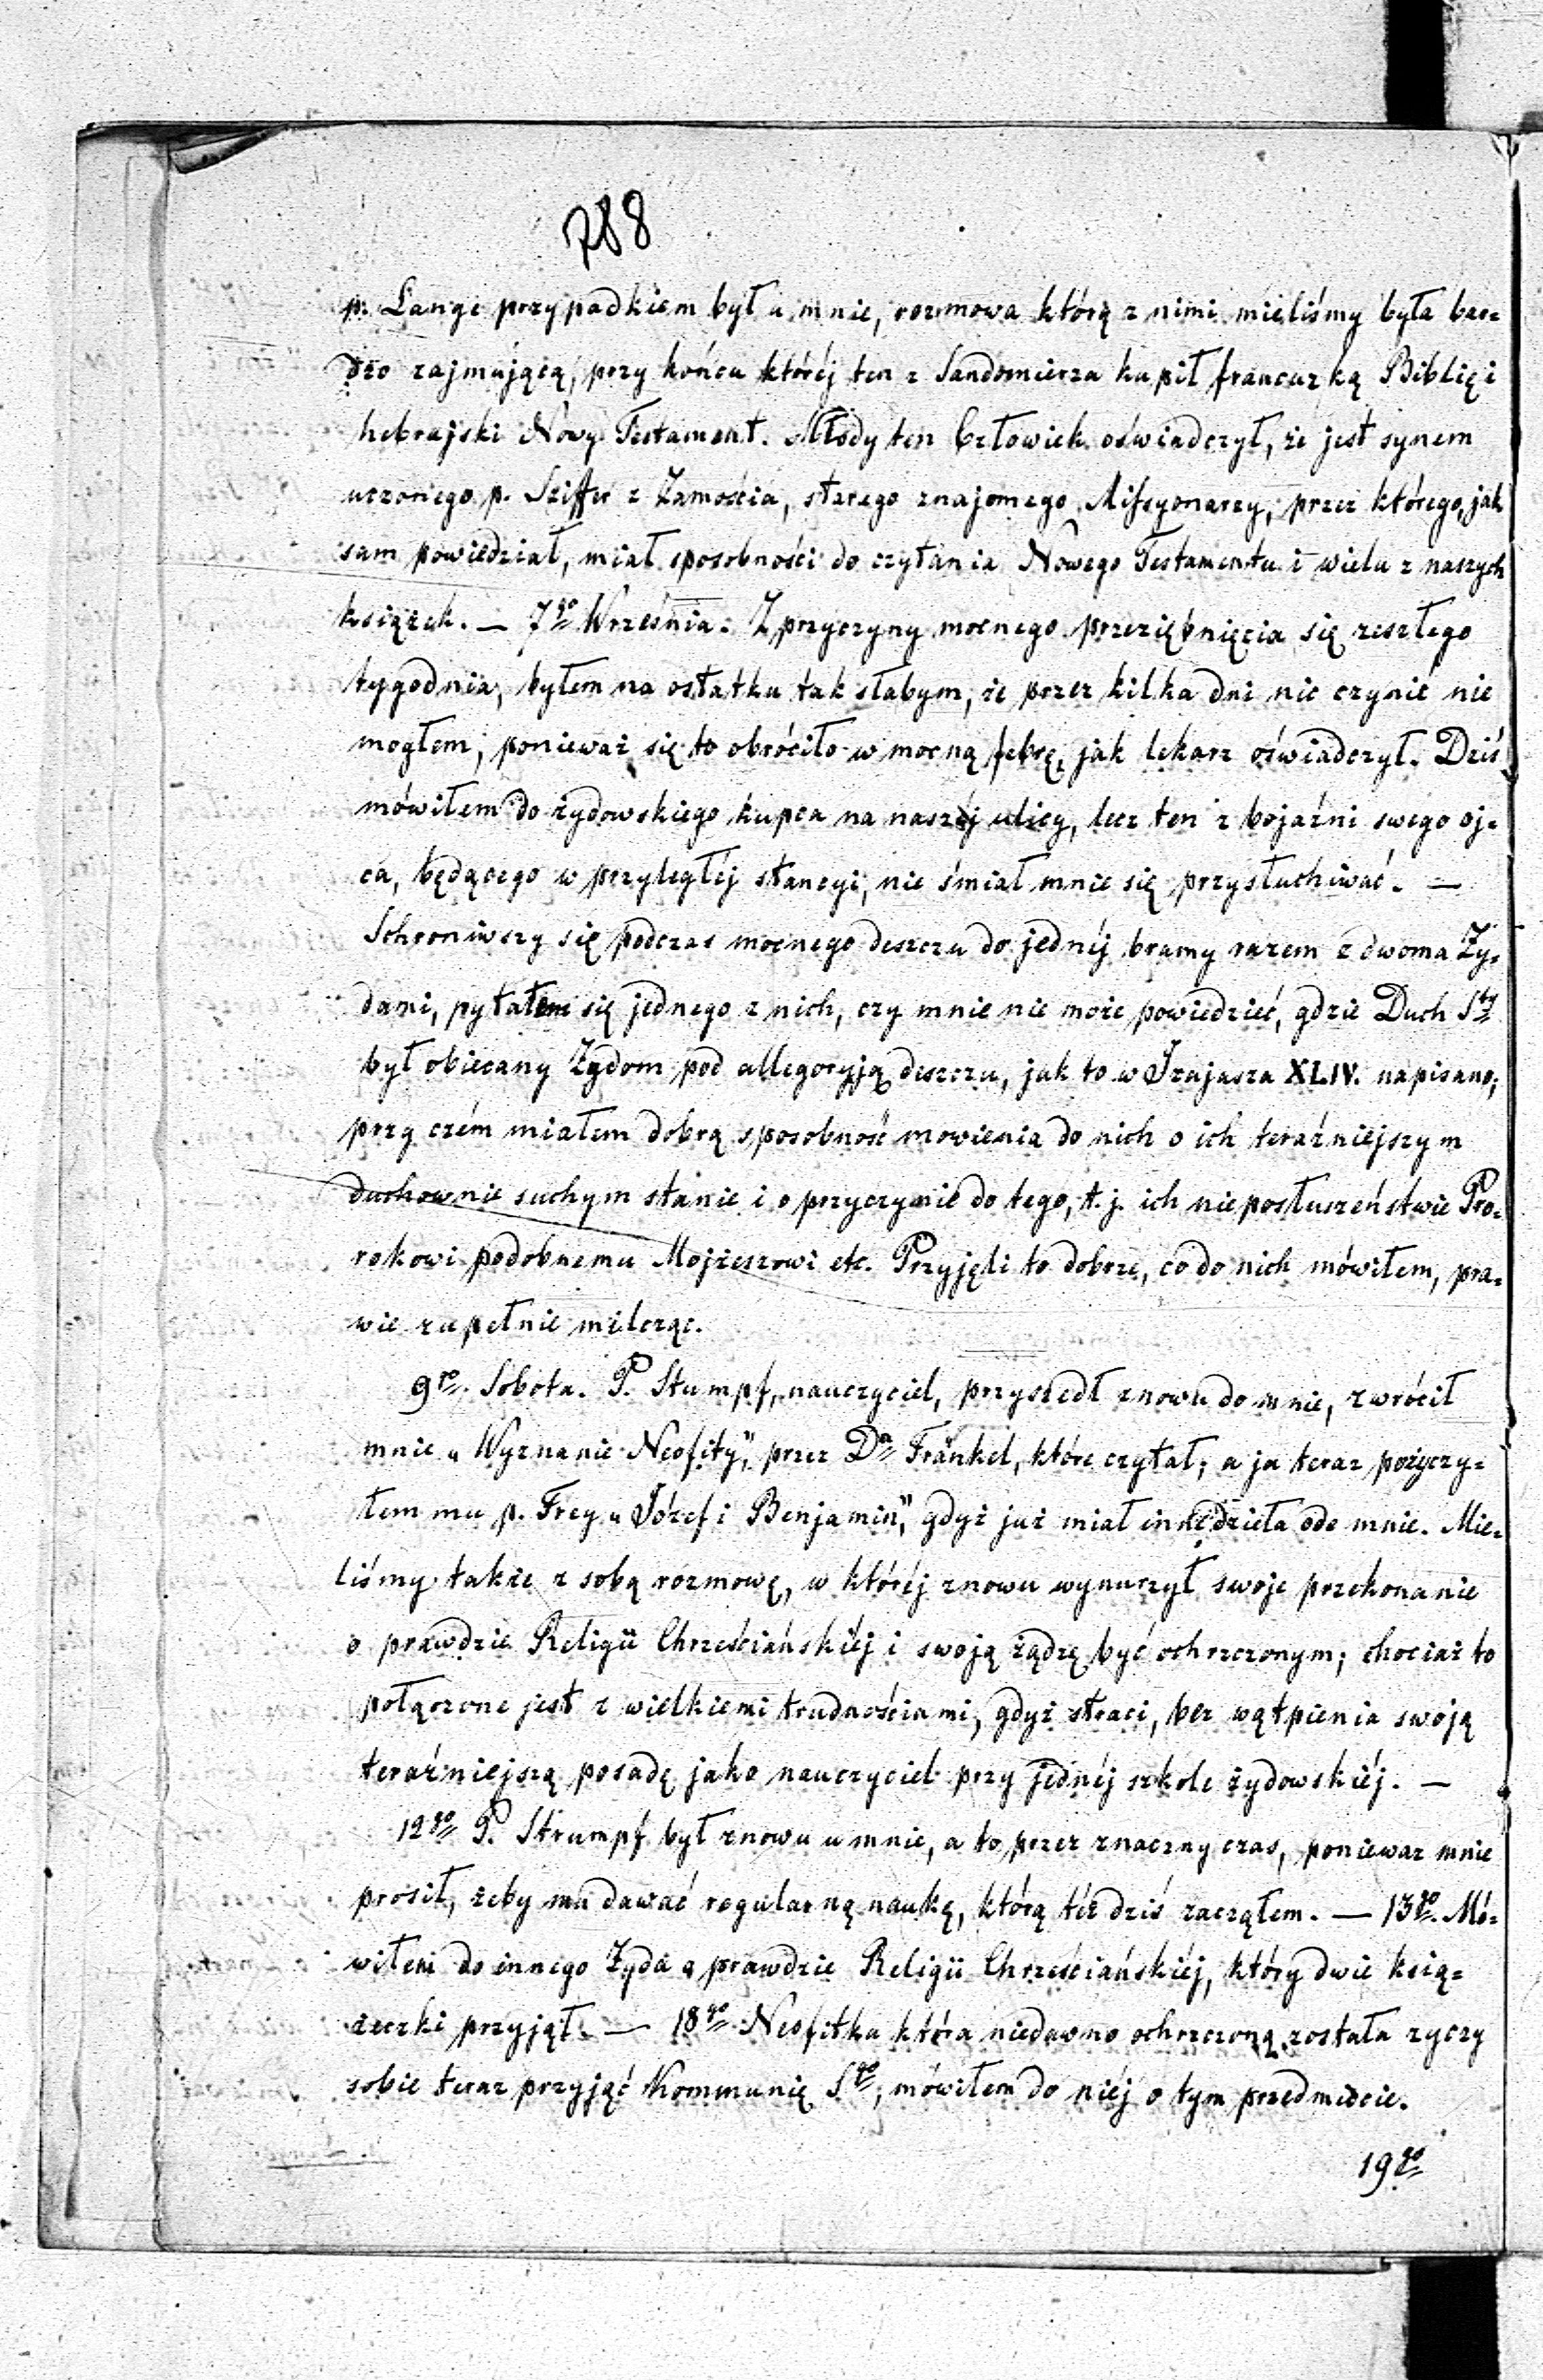 788
p. Lange przypadkiem był u mnie, rozmowa którą z nimi mieliśmy była bar-
dzo zajmującą, przy końcu któréj ten z Sandomierza kupił francuzką Biblię i
hebrajski Nowy Testament. Młody ten Człowiek oświadczył, że jest synem
uczonego p. Sziffer z Zamościa, starego znajomego Missyonarzy, przez którego, jak
sam powiedział, miał sposobności do czytania Nowego Testamentu i wielu z naszych
książek. — 7go Września. Z przyczyny mocnego przeziębnięcia się zeszłego
tygodnia, byłem na ostatku tak słabym, że przez kilka dni nic czynić nie
mogłem, ponieważ się to obróciło w mocną febrę, jak lekarz oświadczył. Dziś
mówiłem do żydowskiego kupca na naszéj ulicy, lecz ten z bojaźni swego oj-
ca, będącego w przyległéj stancyi, nie śmiał mnie się przysłuchiwać. —
Schroniwszy się podczas mocnego deszczu do jednéj bramy razem z dwoma Ży-
dami, pytałem się jednego z nich, czy mnie nie może powiedzieć, gdzie Duch Sty
był obiecany Żydom pod allegoryją deszczu, jak to w Izajasza XLIV. napisano,
przy czém miałem dobrą sposobność mowienia do nich o ich teraźniejszym
duchownie suchym stanie i o przyczynie do tego, t.j. ich nieposłuszeństwie Pro-
rokowi podobnemu Mojżeszowi etc. Przyjęli to dobrze, co do nich mówiłem, pra-
wie zupełnie milcząc.
9go Sobota. P. Stumpf, nauczyciel, przyszedł znowu do mnie, zwrócił
mnie „Wyznanie Neofity”, przez Dra Fränkel, które czytał; a ja teraz pożyczy-
łem mu p. Frey „Józef i Benjamin”, gdyż już miał inne dzieła ode mnie. Mie-
liśmy także z sobą rozmowę, w któréj znowu wynurzył swoje przekonanie
o prawdzie Religii Chrześciańskiéj i swoją żądzę być ochrzczonym; chociaż to
połączone jest z wielkiemi trudnościami, gdyż straci, bez wątpienia swoją
teraźniejszą posadę jako nauczyciel przy jednéj szkole żydowskiéj. —
12go P. Strumpf był znowu u mnie, a to przez znaczny czas, poniewaz mnie
prosił, żeby mu dawać regularną naukę, którą téż dziś zacząłem. — 13go. Mó-
wiłem do innego Żyda o prawdzie Religii Chrześciańskiéj, który dwie ksią-
żeczki przyjął. — 18go Neofitka która niedawno ochrzczoną została zyczy
sobie teraz przyjąć Kommunię Stą, mówiłem do niéj o tym przedmiocie.
19go